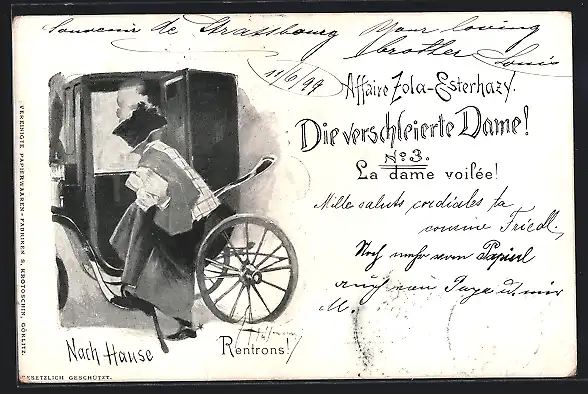 Souvenir de Strassbourg Your loving
brother Louis
11/6/99
Affaire Zola-Esterhazy.
Die verschleierte Dame!
No. 3.
La dame voilée!
Mille saluts cordiales ta
cousine Friedl,
Noch mehr von
auch von Papa u. mir
M.
Nach Hause
Rentrons!
VEREINIGTE PAPIERWAAREN-FABRIKEN S. KROTOSCHIN, GÖRLITZ.
GESETZLICH GESCHÜTZT.